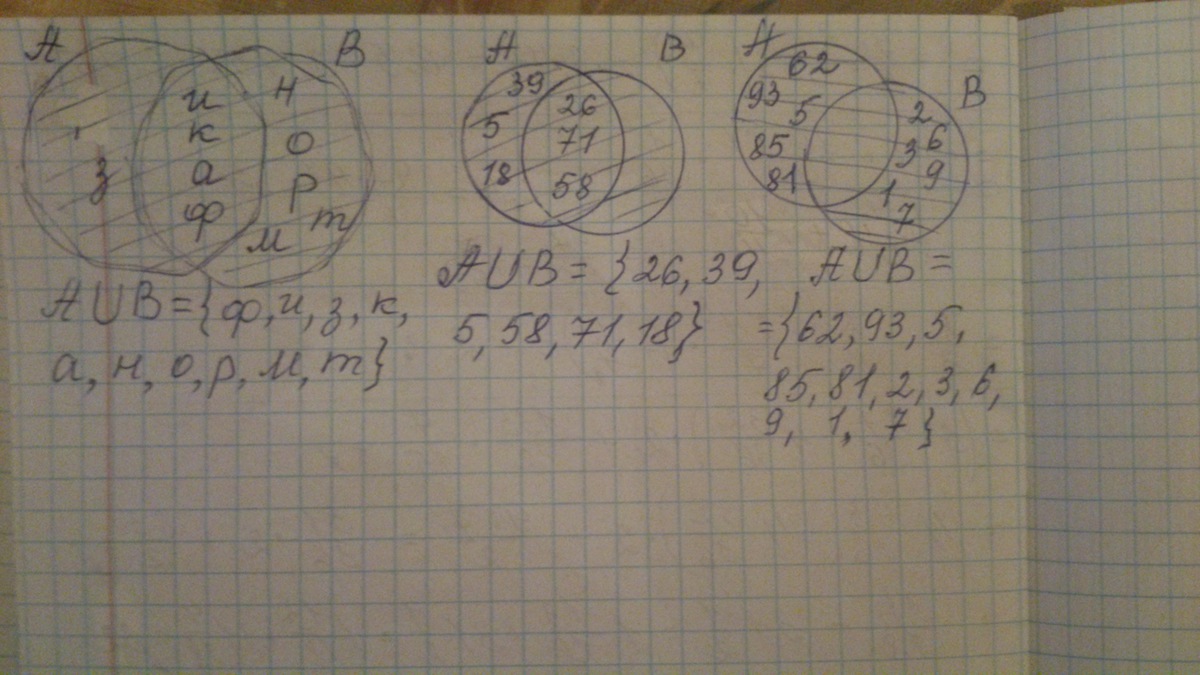 A B
и н
к о
з а р
ф т
м
A∪B={ф,и,з,к,
а,н,о,р,м,т}
A B
39 26
5 71
18 58
A∪B = {26,39,
5,58,71,18}
A B
62
93 5 2
85 3 6
81 1 9
7
A∪B =
={62,93,5,
85,81,2,3,6,
9, 1, 7}